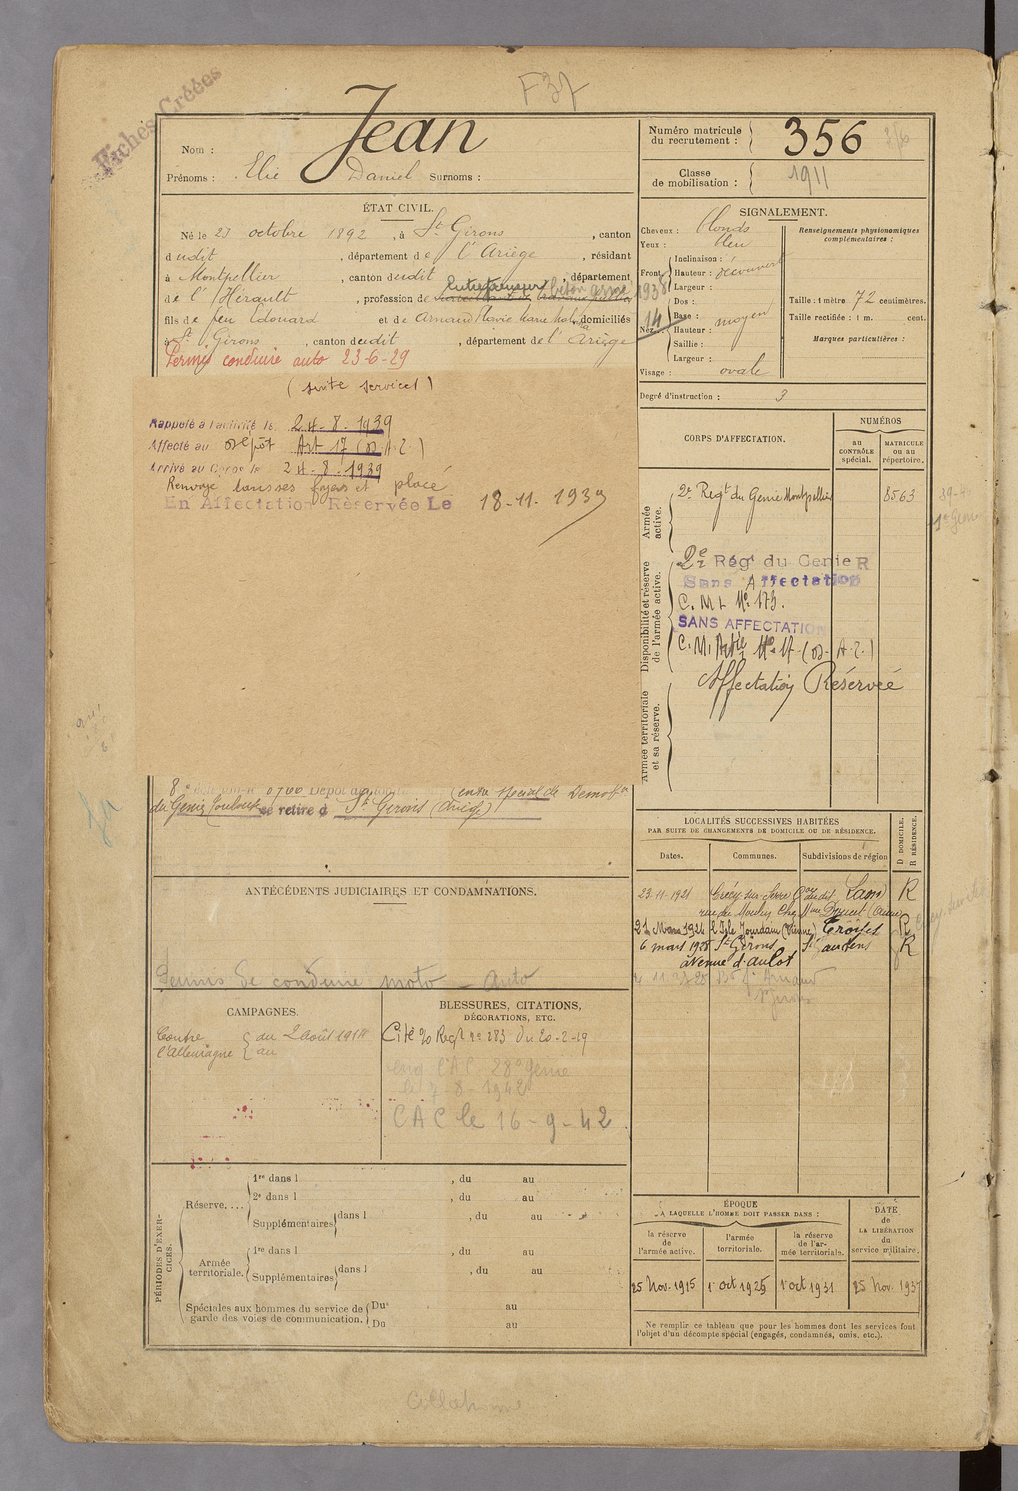 F37
Fiches Créées
Nom : Jean
Prénoms : Elie Daniel Surnoms :
Numéro matricule du recrutement : 356
Classe de mobilisation : 1911
ÉTAT CIVIL.
Né le 23 octobre 1892, à St Girons, canton
dudit, département de l'Ariège, résidant
à Montpellier, canton dudit, département
de l'Hérault, profession de Entrepreneur béton armé 1938
fils de feu Edouard et de Arnaud domiciliés
à St Girons, canton dudit, département de l'Ariège
Permis conduire auto 23-6-29
(suite services)
Rappelé à l'activité le 24-8-1939
Affecté au Dépôt Art 17 (D.A.T.)
Arrivé au Corps le 24-8-1939
Renvoyé dans ses foyers et placé
En Affectation Réservée Le 13-11-1939
du Génie Toulouse se retire à St Girons (Ariège)
ANTÉCÉDENTS JUDICIAIRES ET CONDAMNATIONS.
Permis de conduire moto - auto
CAMPAGNES.
Contre l'Allemagne { du 2 Août 1914
au
BLESSURES, CITATIONS,
DÉCORATIONS, ETC.
Cité Regt n° 283 du 20-2-19
28e Génie
le 7-8-1942
CAC le 16-9-42
PÉRIODES D'EXERCICES.
Réserve....
1re dans l , du au
2e dans l , du au
Supplémentaires dans l , du au
Armée territoriale.
1re dans l , du au
Supplémentaires dans l , du au
Spéciales aux hommes du service de garde des voies de communication.
Du au
Du au
SIGNALEMENT.
Cheveux : blonds
Yeux : bleu
Front
Inclinaison :
Hauteur : découvert
Largeur :
Nez
Dos :
Base :
Hauteur : moyen
Saillie :
Largeur :
Visage : ovale
Renseignements physionomiques complémentaires :
Taille : 1 mètre 72 centimètres.
Taille rectifiée : 1 m. cent.
Marques particulières :
Degré d'instruction : 3
CORPS D'AFFECTATION.
NUMÉROS
au CONTRÔLE spécial.
MATRICULE ou au répertoire.
Armée active.
2e Regt du Génie Montpellier 8563
Disponibilité et réserve de l'armée active.
2e Rég' du Génie R
Sans Affectation
C. M. 173.
SANS AFFECTATION
C. M. Artie N° 17 (D.A.T.)
Armée territoriale et sa réserve.
Affectation Réservée
LOCALITÉS SUCCESSIVES HABITÉES
PAR SUITE DE CHANGEMENTS DE DOMICILE OU DE RÉSIDENCE.
Dates. Communes. Subdivisions de région
D DOMICILE. R RÉSIDENCE.
23-11-1921 Crécy-sur-Serre Laon R
21 Mars 1924 l'Isle Jourdain (Vienne) R
6 mars 1928 St Girons St Gaudens R
avenue d'aulot
ÉPOQUE
A LAQUELLE L'HOMME DOIT PASSER DANS :
la réserve de l'armée active.
l'armée territoriale.
la réserve de l'armée territoriale.
DATE de LA LIBÉRATION du service militaire.
25 Nov. 1915 1 oct 1925 1 oct 1931 25 Nov. 1937
Ne remplir ce tableau que pour les hommes dont les services font
l'objet d'un décompte spécial (engagés, condamnés, omis, etc.).